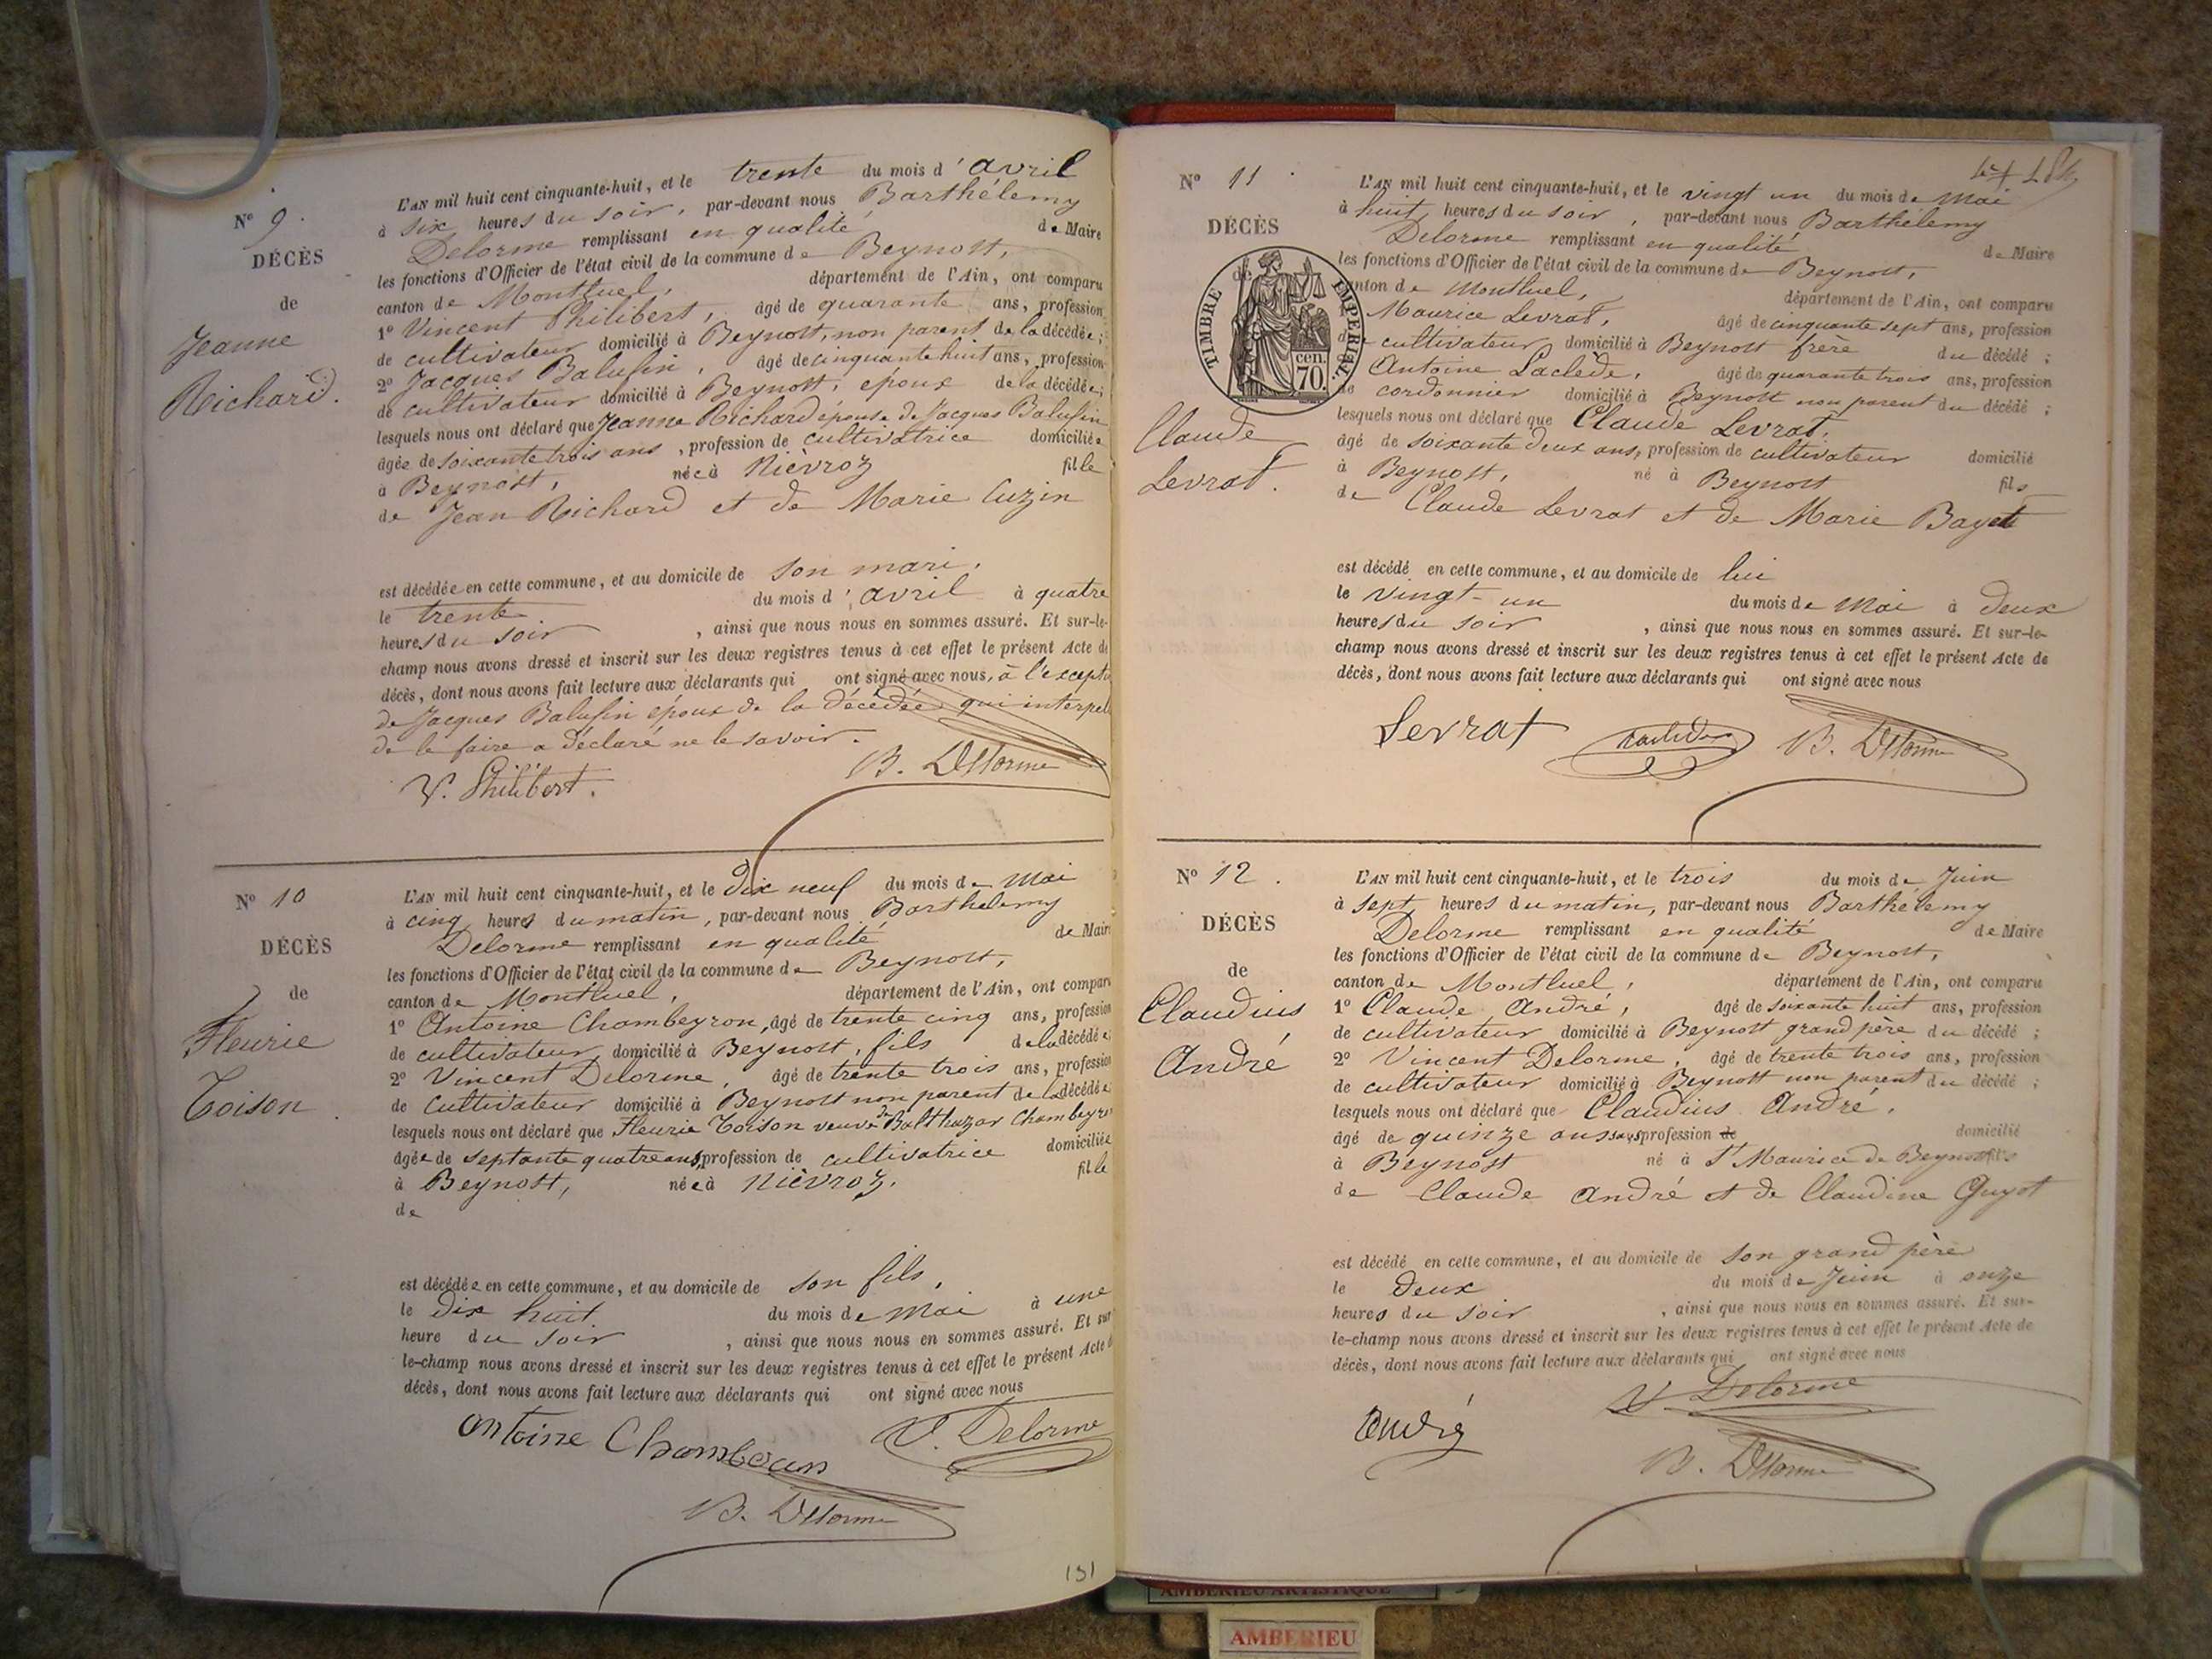 N° 9.
DÉCÈS
de
Jeanne
Richard.
L'AN mil huit cent cinquante-huit, et le trente du mois d'avril
à six heures du soir, par-devant nous Barthélemy
Delorme remplissant en qualité de Maire
les fonctions d'Officier de l'état civil de la commune de Beynost,
canton de Montluel, département de l'Ain, ont comparu
1° Vincent Philibert, âgé de quarante ans, profession
de cultivateur domicilié à Beynost, non parent de la décédée;
2° Jacques Balufin, âgé de cinquante huit ans, profession
de cultivateur domicilié à Beynost, époux de la décédée;
lesquels nous ont déclaré que Jeanne Richard épouse de Jacques Balufin
âgée de soixante trois ans, profession de cultivatrice domiciliée
à Beynost, née à Nièvroz fille
de Jean Richard et de Marie Cuzin
est décédée en cette commune, et au domicile de son mari,
le trente du mois d'avril à quatre
heures du soir, ainsi que nous nous en sommes assuré. Et sur-le-
champ nous avons dressé et inscrit sur les deux registres tenus à cet effet le présent Acte de
décès, dont nous avons fait lecture aux déclarants qui ont signé avec nous, à l'excepti
de Jacques Balufin époux de la décédée qui interpel
de le faire a déclaré ne le savoir.
V. Philibert. B. Delorme
N° 10
DÉCÈS
de
Fleurie
Toison.
L'AN mil huit cent cinquante-huit, et le dix neuf du mois de Mai
à cinq heures du matin, par-devant nous Barthélemy
Delorme remplissant en qualité de Maire
les fonctions d'Officier de l'état civil de la commune de Beynost,
canton de Montluel, département de l'Ain, ont comparu
1° Antoine Chambeyron, âgé de trente cinq ans, profession
de cultivateur domicilié à Beynost, fils de la décédée;
2° Vincent Delorme, âgé de trente trois ans, profession
de cultivateur domicilié à Beynost non parent de la décédée
lesquels nous ont déclaré que Fleurie Toison veuve de Balthazar Chambeyro
âgée de septante quatre ans, profession de cultivatrice domiciliée
à Beynost, née à Nièvroz. fille
de
est décédée en cette commune, et au domicile de son fils,
le dix huit du mois de Mai à une
heure du soir, ainsi que nous nous en sommes assuré. Et sur
le-champ nous avons dressé et inscrit sur les deux registres tenus à cet effet le présent Acte d
décès, dont nous avons fait lecture aux déclarants qui ont signé avec nous
Antoine V. Delorme
B. Delorme
131
N° 11.
DÉCÈS
de
TIMBRE IMPERIAL
cen.
70.
Claude
Levrat.
L'AN mil huit cent cinquante-huit, et le vingt un du mois de Mai
à huit heures du soir, par-devant nous Barthélemy
Delorme remplissant en qualité de Maire
les fonctions d'Officier de l'état civil de la commune de Beynost,
canton de Montluel, département de l'Ain, ont comparu
Maurice Levrat, âgé de cinquante sept ans, profession
de cultivateur domicilié à Beynost frère du décédé;
Antoine Laclède, âgé de quarante trois ans, profession
de cordonnier domicilié à Beynost non parent du décédé;
lesquels nous ont déclaré que Claude Levrat,
âgé de soixante deux ans, profession de cultivateur domicilié
à Beynost, né à Beynost fils
de Claude Levrat et de Marie Bayet
est décédé en cette commune, et au domicile de lui
le vingt-un du mois de Mai à deux
heures du soir, ainsi que nous nous en sommes assuré. Et sur-le-
champ nous avons dressé et inscrit sur les deux registres tenus à cet effet le présent Acte de
décès, dont nous avons fait lecture aux déclarants qui ont signé avec nous
Levrat B. Delorme
N° 12.
DÉCÈS
de
Claudius
André
L'AN mil huit cent cinquante-huit, et le trois du mois de Juin
à sept heures du matin, par-devant nous Barthélemy
Delorme remplissant en qualité de Maire
les fonctions d'Officier de l'état civil de la commune de Beynost,
canton de Montluel, département de l'Ain, ont comparu
1° Claude André, âgé de soixante huit ans, profession
de cultivateur domicilié à Beynost grand père du décédé;
2° Vincent Delorme, âgé de trente trois ans, profession
de cultivateur domicilié à Beynost non parent du décédé;
lesquels nous ont déclaré que Claudius André,
âgé de quinze ans sans profession de domicilié
à Beynost né à St Maurice de Beynost fils
de Claude André et de Claudine Guyot
est décédé en cette commune, et au domicile de son grand père
le deux du mois de Juin à onze
heures du soir, ainsi que nous nous en sommes assuré. Et sur-
le-champ nous avons dressé et inscrit sur les deux registres tenus à cet effet le présent Acte de
décès, dont nous avons fait lecture aux déclarants qui ont signé avec nous
V. Delorme
André
B. Delorme
AMBERIEU ARTISTIQUE
AMBERIEU